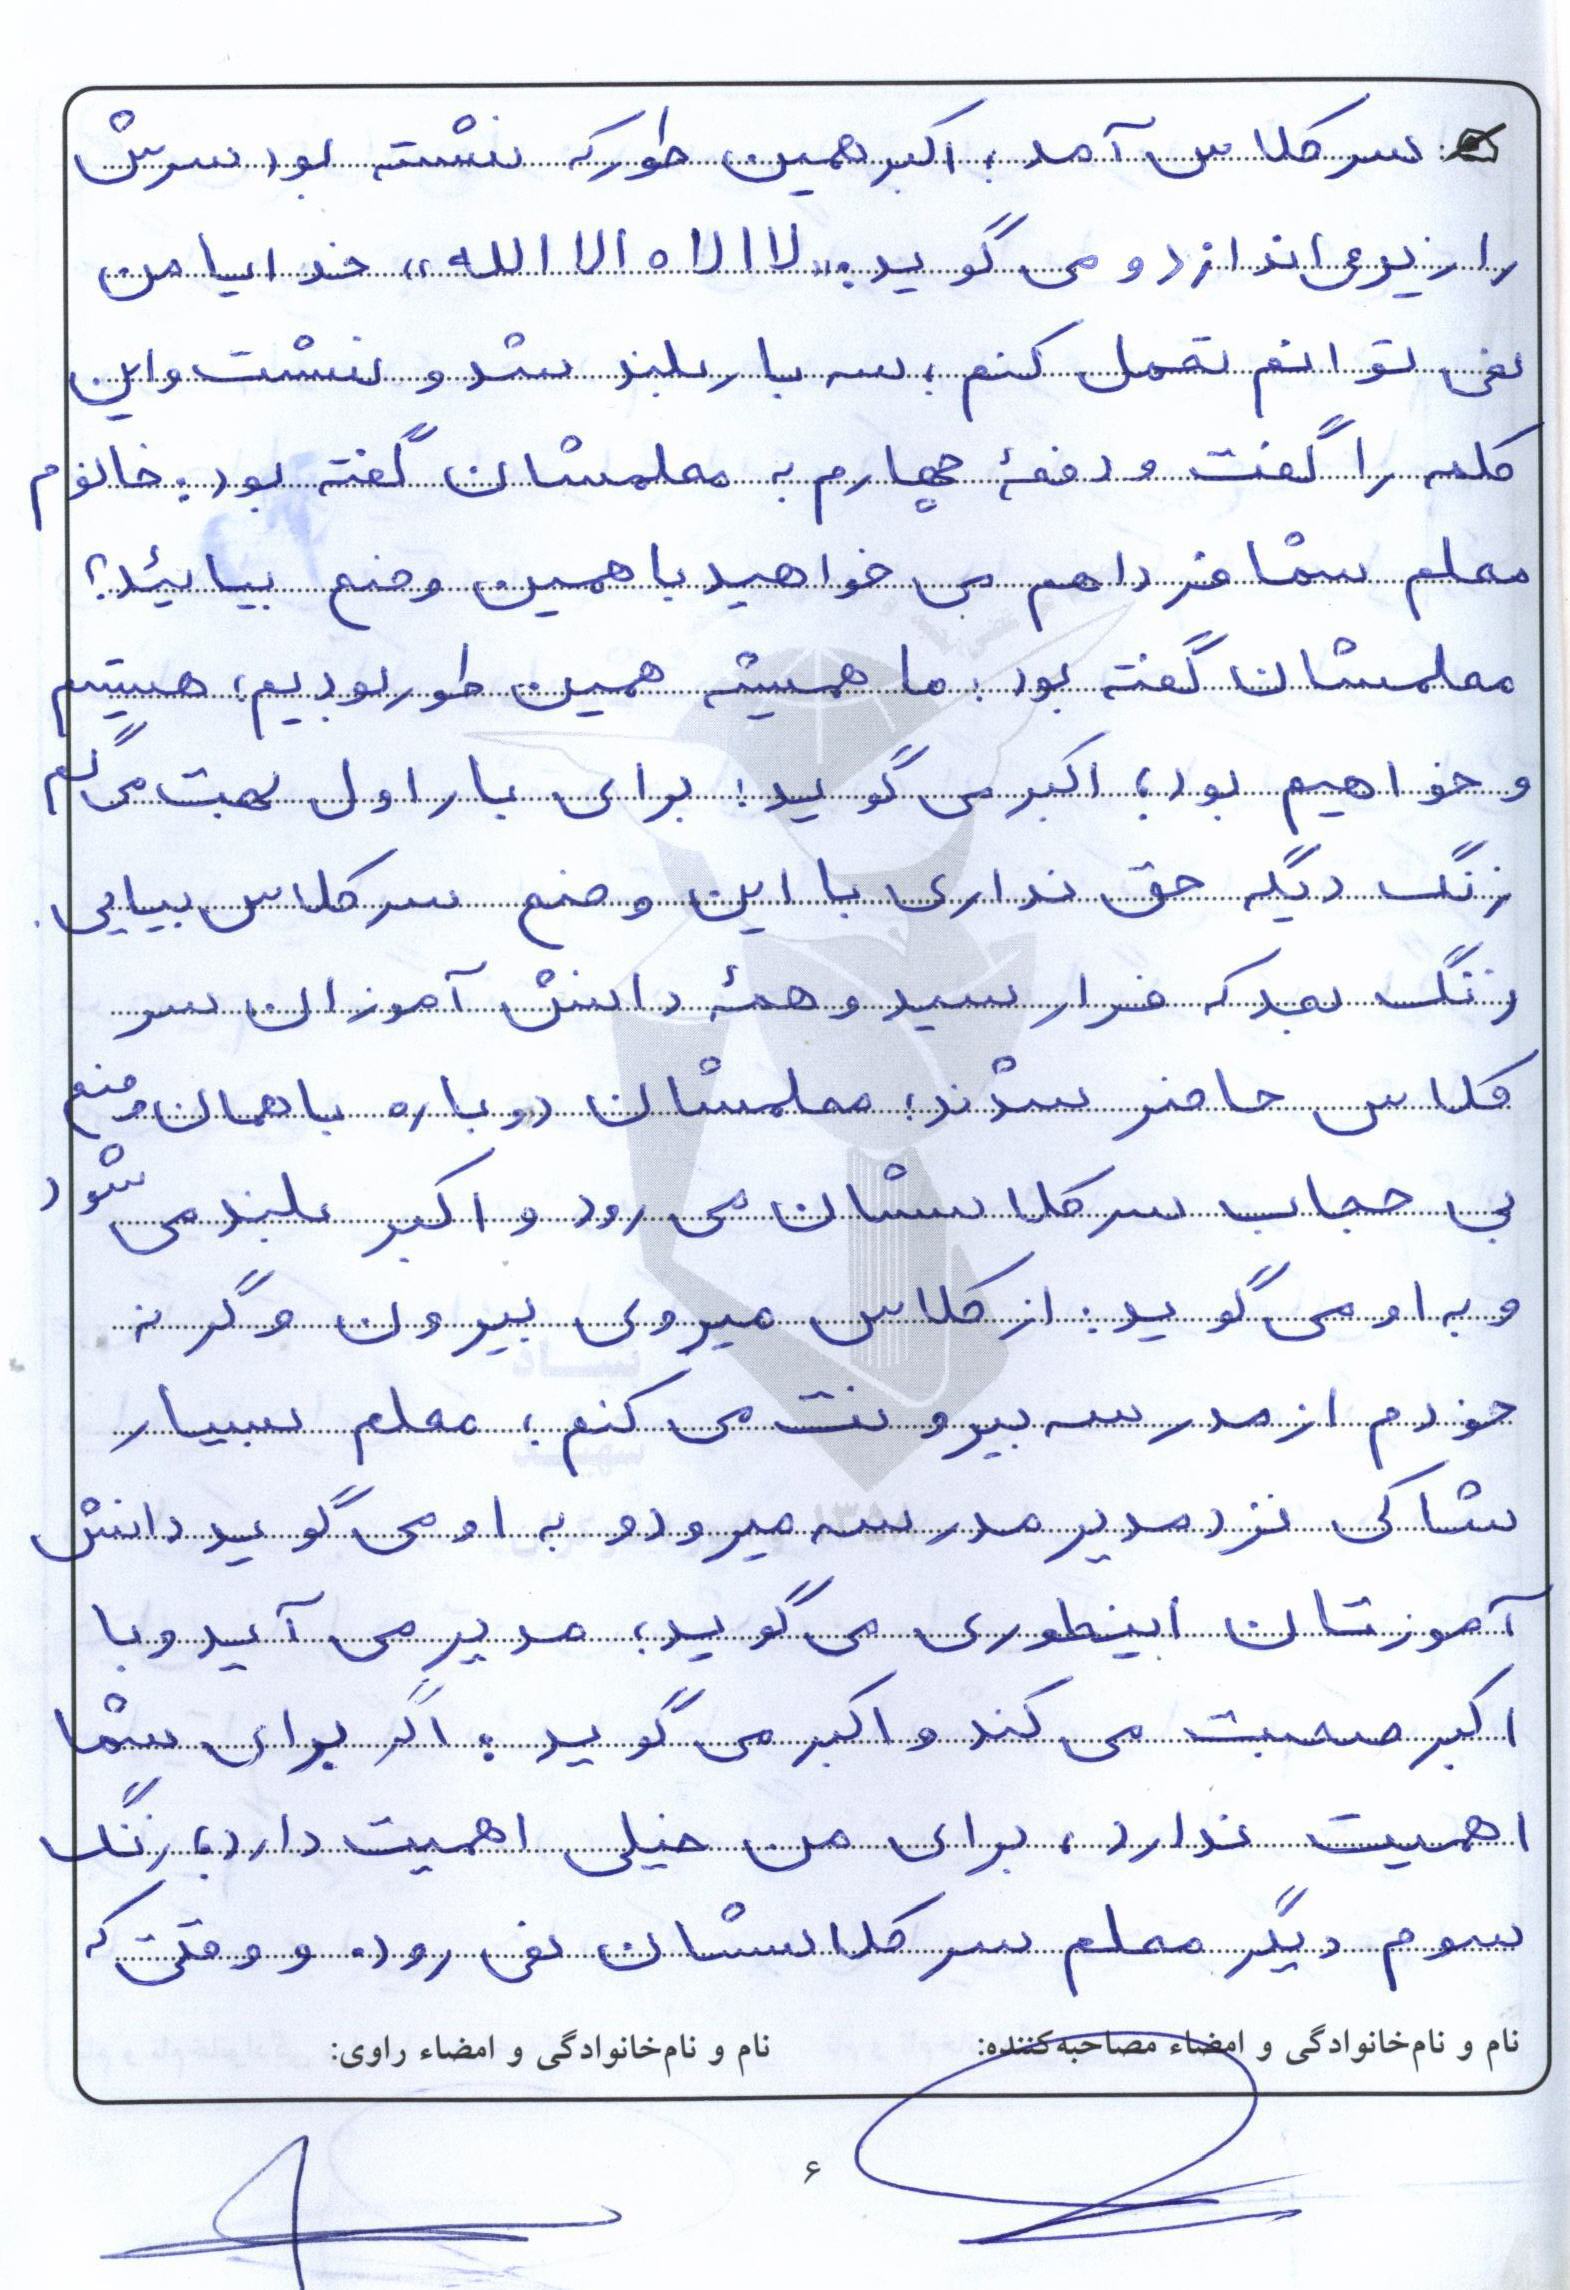 سر کلاس آمد؛ اکبر همین طور که نشسته بود سرش
را زیر می اندازد و می گوید: «لا الاه الا الله»، خدایا من
نمی توانم تحمل کنم؛ سه بار بلند شد و نشست و این
کلمه را گفت و دفعهٔ چهارم به معلمشان گفته بود: خانوم
معلم شما فردا هم می خواهید با همین وضع بیائید؟
معلمشان گفته بود: ما همیشه همین طور بودیم، هستیم
و خواهیم بود؛ اکبر می گوید: برای بار اول بهت می گم
زنگ دیگه حق نداری با این وضع سر کلاس بیایی.
زنگ بعد که فرا رسید و همهٔ دانش آموزان سر
کلاس حاضر شدند؛ معلمشان دوباره با همان وضع
بی حجاب سر کلاسشان می رود و اکبر بلند می شود
و به او می گوید: از کلاس میروی بیرون و گر نه
خودم از مدرسه بیرونت می کنم؛ معلم بسیار
شاکی نزد مدیر مدرسه میرود و به او می گوید دانش
آموزتان اینطوری می گوید؛ مدیر می آید و با
اکبر صحبت می کند و اکبر می گوید: اگر برای شما
اهمیت ندارد، برای من خیلی اهمیت دارد؛ زنگ
سوم دیگر معلم سر کلاسشان نمی رود. و وقتی که
نام و نام‌خانوادگی و امضاء مصاحبه‌کننده: نام و نام‌خانوادگی و امضاء راوی:
۶